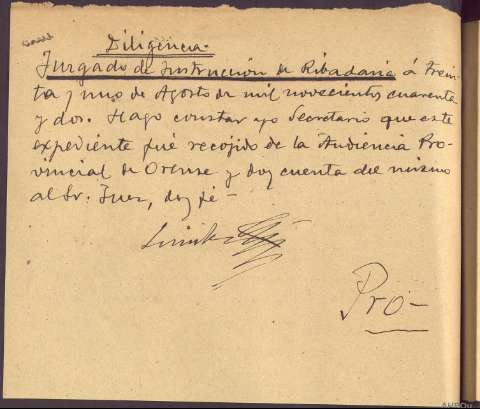 Diligencia.
Juzgado de Instrucción de Ribadavia á trein-
ta y uno de Agosto de mil novecientos cuarenta
y dos. Hago constar yo Secretario que este
expediente fué recojido de la Audiencia Pro-
vincial de Orense y doy cuenta del mismo
al Sr. Juez, doy fé -
Pro-